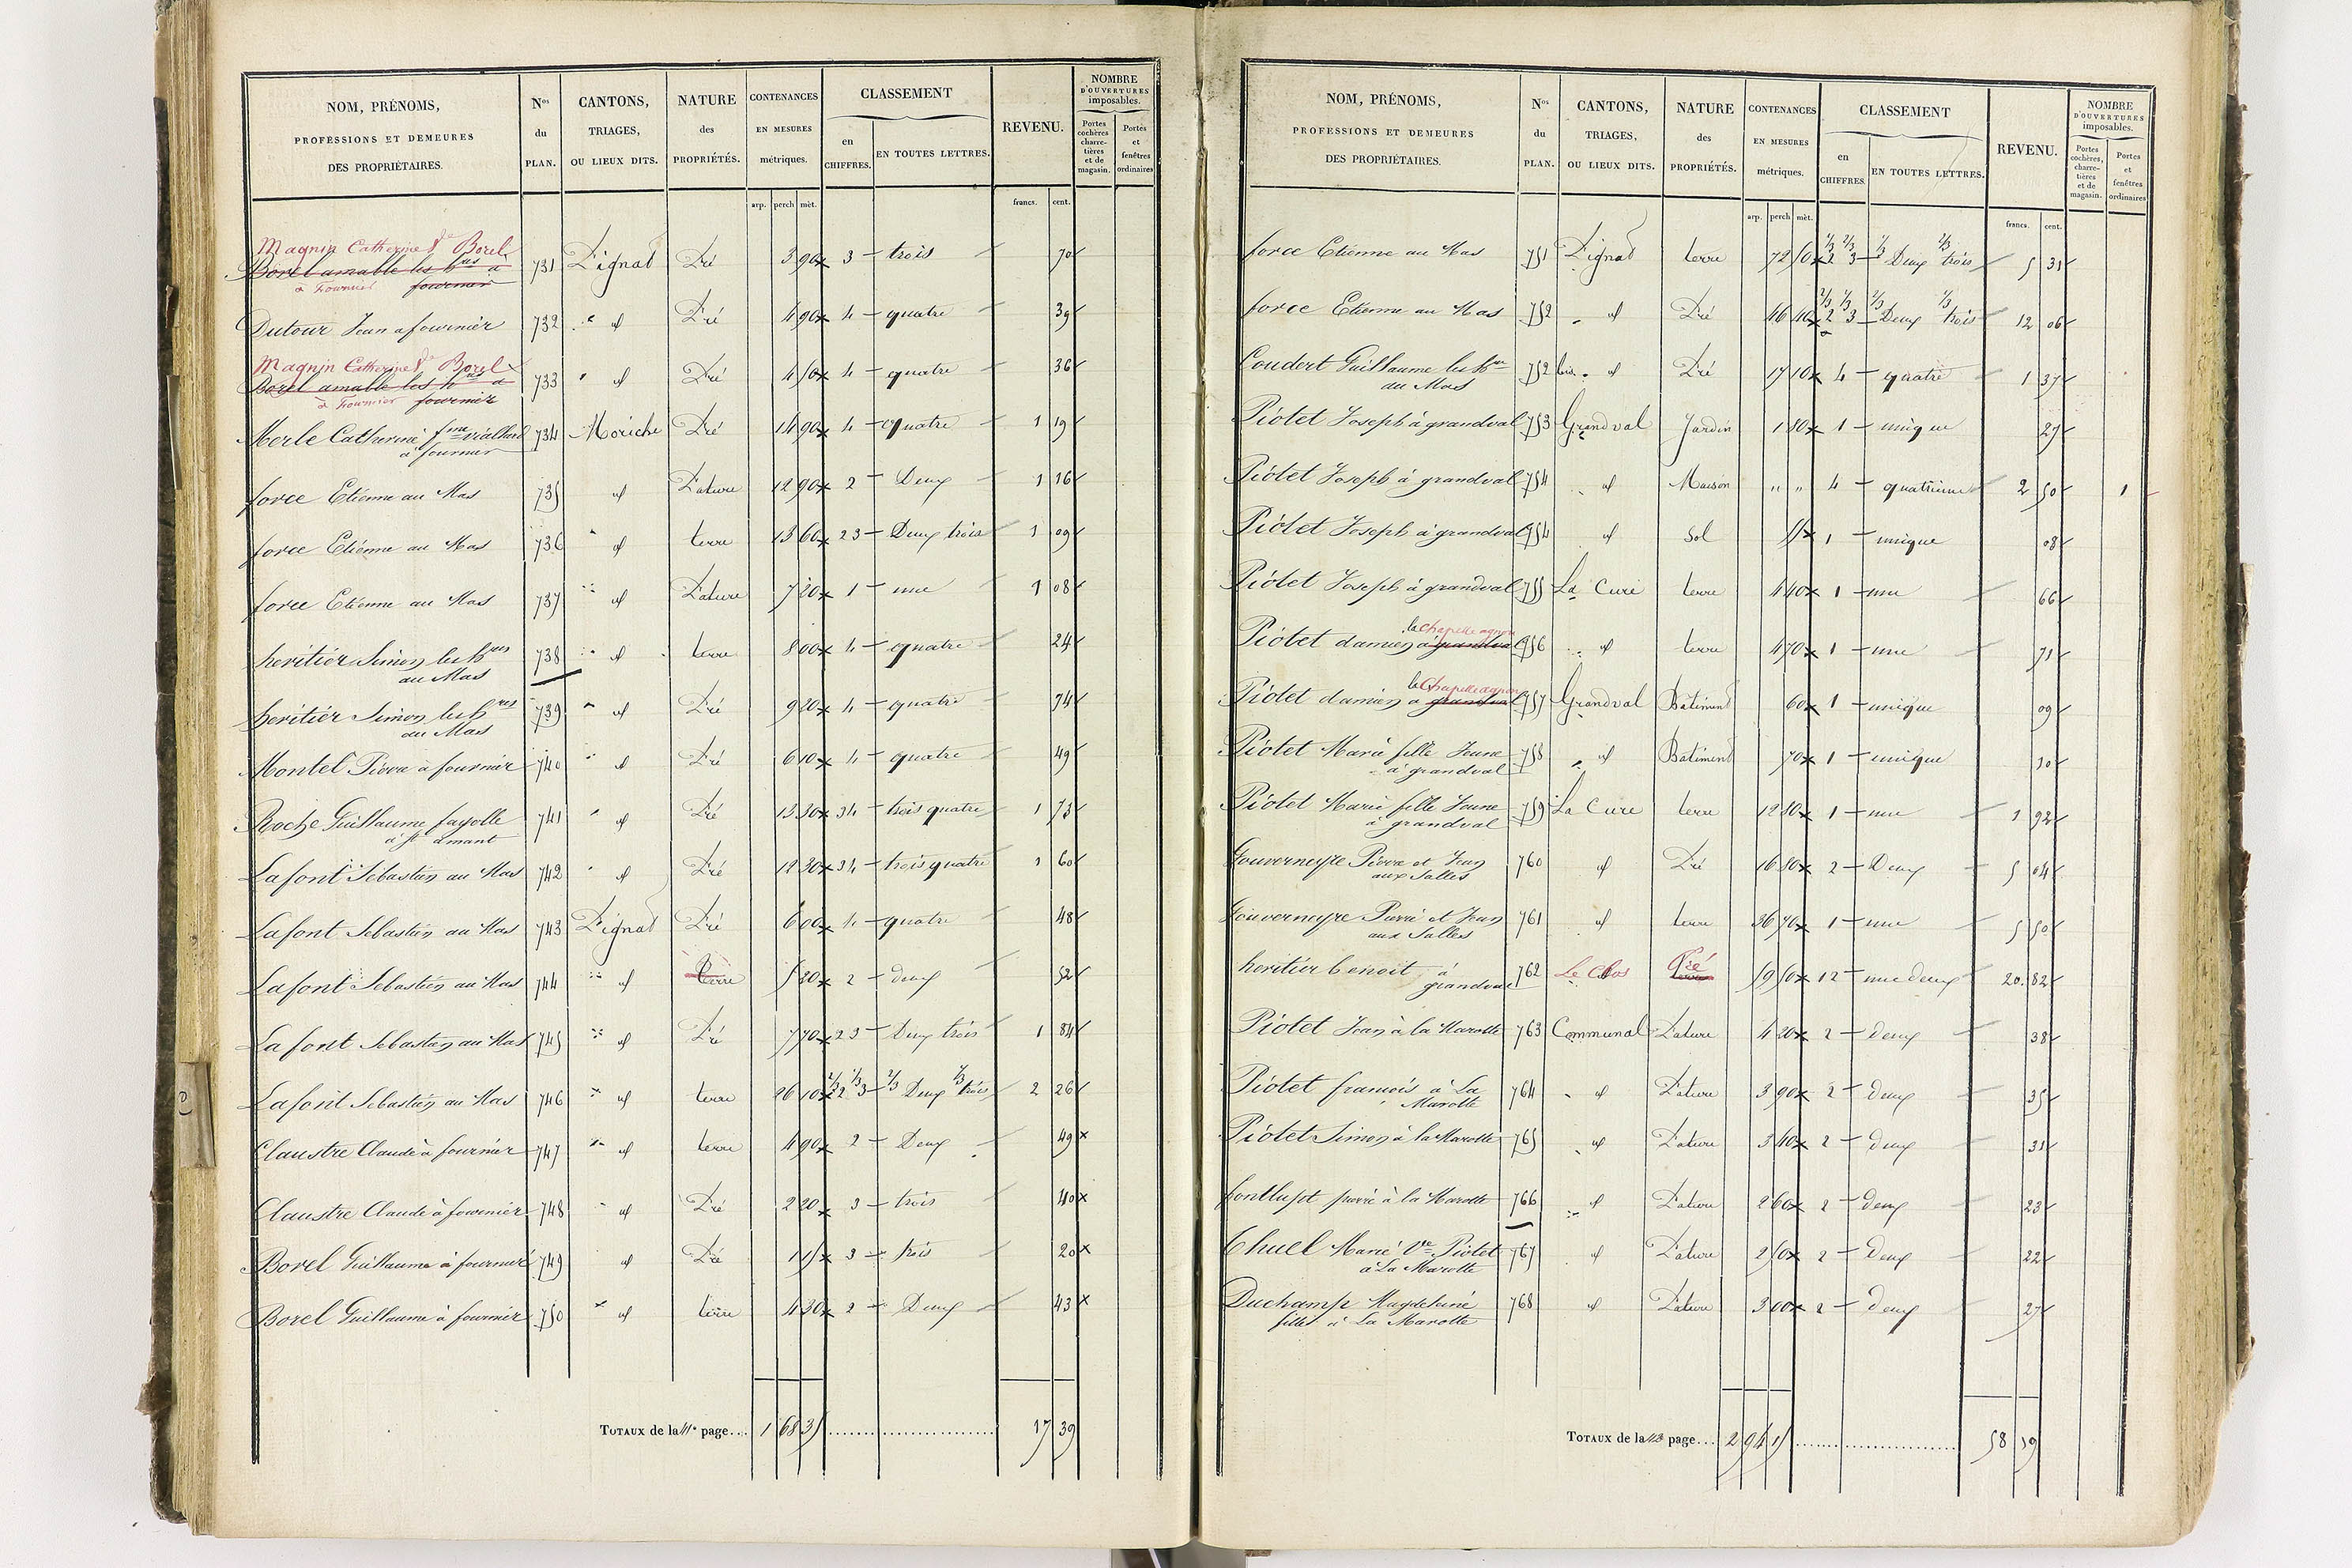 NOM, PRÉNOMS, PROFESSIONS ET DEMEURES DES PROPRIÉTAIRES. | Nos du PLAN. | CANTONS, TRIAGES, OU LIEUX DITS. | NATURE des PROPRIÉTÉS. | CONTENANCES EN MESURES métriques. | CLASSEMENT en CHIFFRES. | EN TOUTES LETTRES. | REVENU. | NOMBRE D'OUVERTURES imposables. Portes cochères charretières et de magasin. | Portes et fenêtres ordinaires
arp. perch mèt. francs. cent.
Magnin Catherine Borel
Borel amable les hers à 731 Lignat Pré 3 90 3 trois 70
à Fournier fournier
Dutour Jean a fournier 732 id Pré 4 90 4 quatre 39
Magnin Catherine Borel
Borel amable les hers a 733 id Pré 4 50 4 quatre 36
à Fournier fournier
Merle Catherine fme vialhard 734 Moriche Pré 14 90 4 quatre 1 19
à fournier
force Etienne au Mas 735 id Pature 12 90 2 Deux 1 16
force Etienne au Mas 736 id terre 13 60 2 3 Deux trois 1 09
force Etienne au Mas 737 id Pature 7 20 1 une 1 08
heritier Simon les hers 738 id terre 8 00 4 quatre 24
au Mas
heritier Simon les hers 739 id Pré 9 20 4 quatre 74
au Mas
Montel Pierre a fournier 740 id Pré 6 10 4 quatre 49
Roche Guillaume fayolle 741 id Pré 13 30 3 4 trois quatre 1 73
à st amant
Lafont Sebastien au Mas 742 id Pré 12 30 3 4 trois quatre 1 60
Lafont Sebastien au Mas 743 Lignat Pré 6 00 4 quatre 48
Lafont Sebastien au Mas 744 id terre 5 20 2 deux 52
Lafont Sebastien au Mas 745 id Pré 7 70 2 3 Deux trois 1 84
Lafont Sebastien au Mas 746 id terre 26 10 2/3 2 1/3 3 2/3 Deux 1/3 trois 2 26
Claustre Claude à fournier 747 id terre 4 90 2 Deux 49
Claustre Claude à fournier 748 id Pré 2 20 3 trois 40
Borel Guillaume à fournier 749 id Pré 1 15 3 trois 20
Borel Guillaume à fournier 750 id terre 4 30 2 Deux 43
TOTAUX de la 41e page.... 1 68 35 17 39
NOM, PRÉNOMS, PROFESSIONS ET DEMEURES DES PROPRIÉTAIRES. | Nos du PLAN. | CANTONS, TRIAGES, OU LIEUX DITS. | NATURE des PROPRIÉTÉS. | CONTENANCES EN MESURES métriques. | CLASSEMENT en CHIFFRES. | EN TOUTES LETTRES. | REVENU. | NOMBRE D'OUVERTURES imposables. Portes cochères, charretières et de magasin. | Portes et fenêtres ordinaires
arp. perch mèt. francs. cent.
force Etienne au Mas 751 Lignat terre 72 50 1/3 2 2/3 3 1/3 Deux 2/3 trois 5 31
force Etienne au Mas 752 id Pré 46 40 2/3 2 1/3 3 2/3 Deux 1/3 trois 12 06
Coudert Guillaume les hers 752 bis id Pré 17 10 4 quatre 1 37
au Mas
Piotet Joseph à grandval 753 Grandval Jardin 1 80 1 unique 27
Piotet Joseph à grandval 754 id Maison " " 4 quatrieme 2 50 1
Piotet Joseph à grandval 754 id Sol 55 1 unique 08
Piotet Joseph à grandval 755 La Cure terre 4 40 1 une 66
la Chapelle agnon
Piotet damien à grandval 756 id terre 4 70 1 une 71
la Chapelle agnon
Piotet damien a grandval 757 Grandval Batiment 60 1 unique 09
Piotet Marie fille Jeune 758 id Batiment 70 1 unique 10
à grandval
Piotet Marie fille Jeune 759 La Cure terre 12 80 1 une 1 92
à grandval
Gouverneyre Pierre et Jean 760 id Pré 16 80 2 Deux 5 04
aux Salles
Gouverneyre Pierre et Jean 761 id terre 36 70 1 une 5 50
aux Salles
heritier benoit à 762 Le Clos Pré terre 59 50 1 2 une deux 20 82
grandval
Piotet Jean à la Marotte 763 Communal Pature 4 20 2 deux 38
Piotet francois à La 764 id Pature 3 90 2 deux 35
Marotte
Piotet Simon à la Marotte 765 id Pature 3 40 2 deux 31
fontlupt pierre à la Marotte 766 id Pature 2 60 2 deux 23
Chuel Marie Vve Piotet 767 id Pature 2 50 2 Deux 22
à La Marotte
Duchamp Magdeleine 768 id Pature 3 00 2 deux 27
fille à La Marotte
TOTAUX de la 42e page.... 2 94 15 58 19